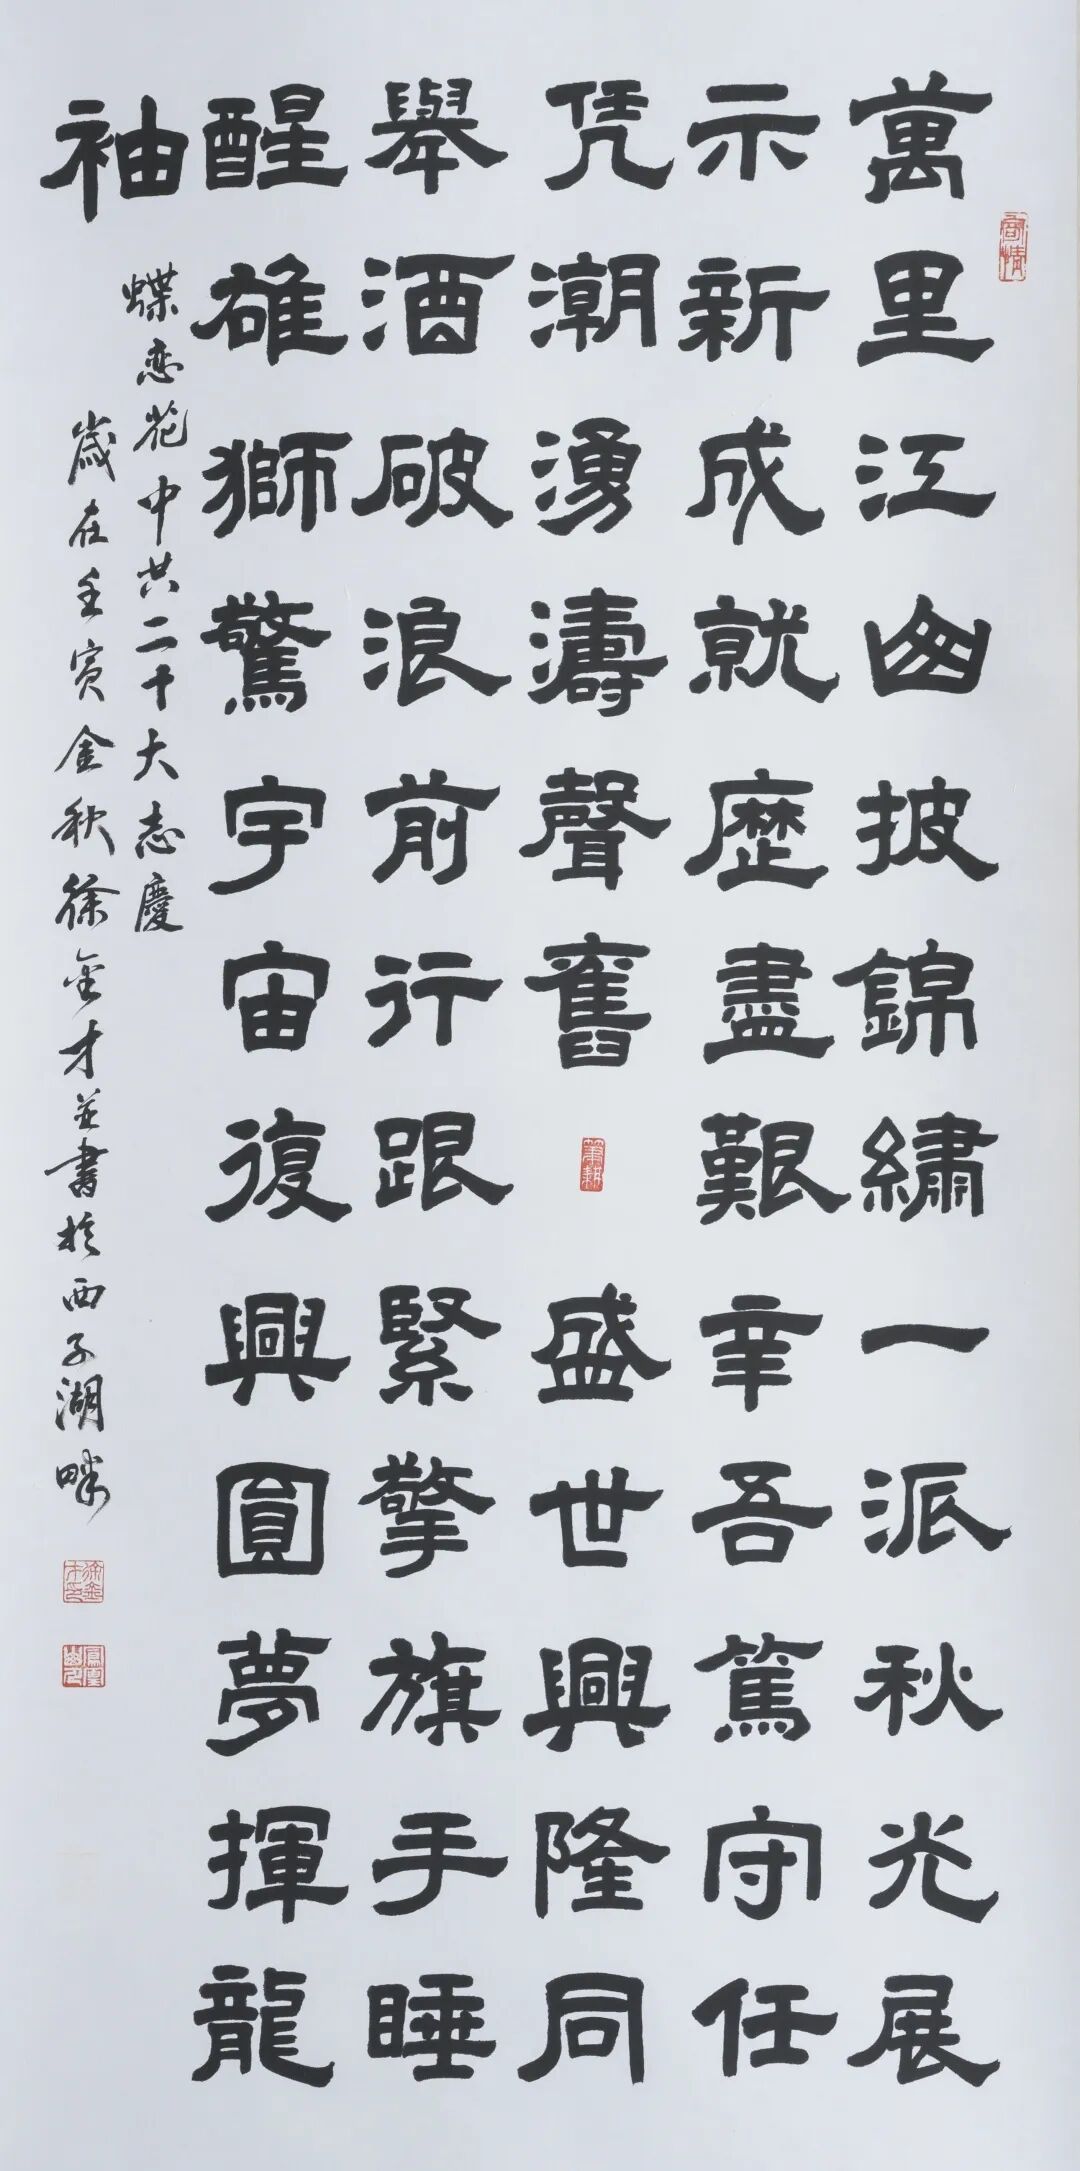 萬里江山披錦繡一派秋光展
示新成就歷盡艱辛吾篤守任
凭潮湧濤聲舊
筆耕
盛世興隆同
舉酒破浪前行跟緊擎旗手睡
醒雄獅驚宇宙復興圓夢揮龍
袖
蝶恋花中共二十大志慶
歲在壬寅金秋徐金才並書於西子湖畔
徐金才印